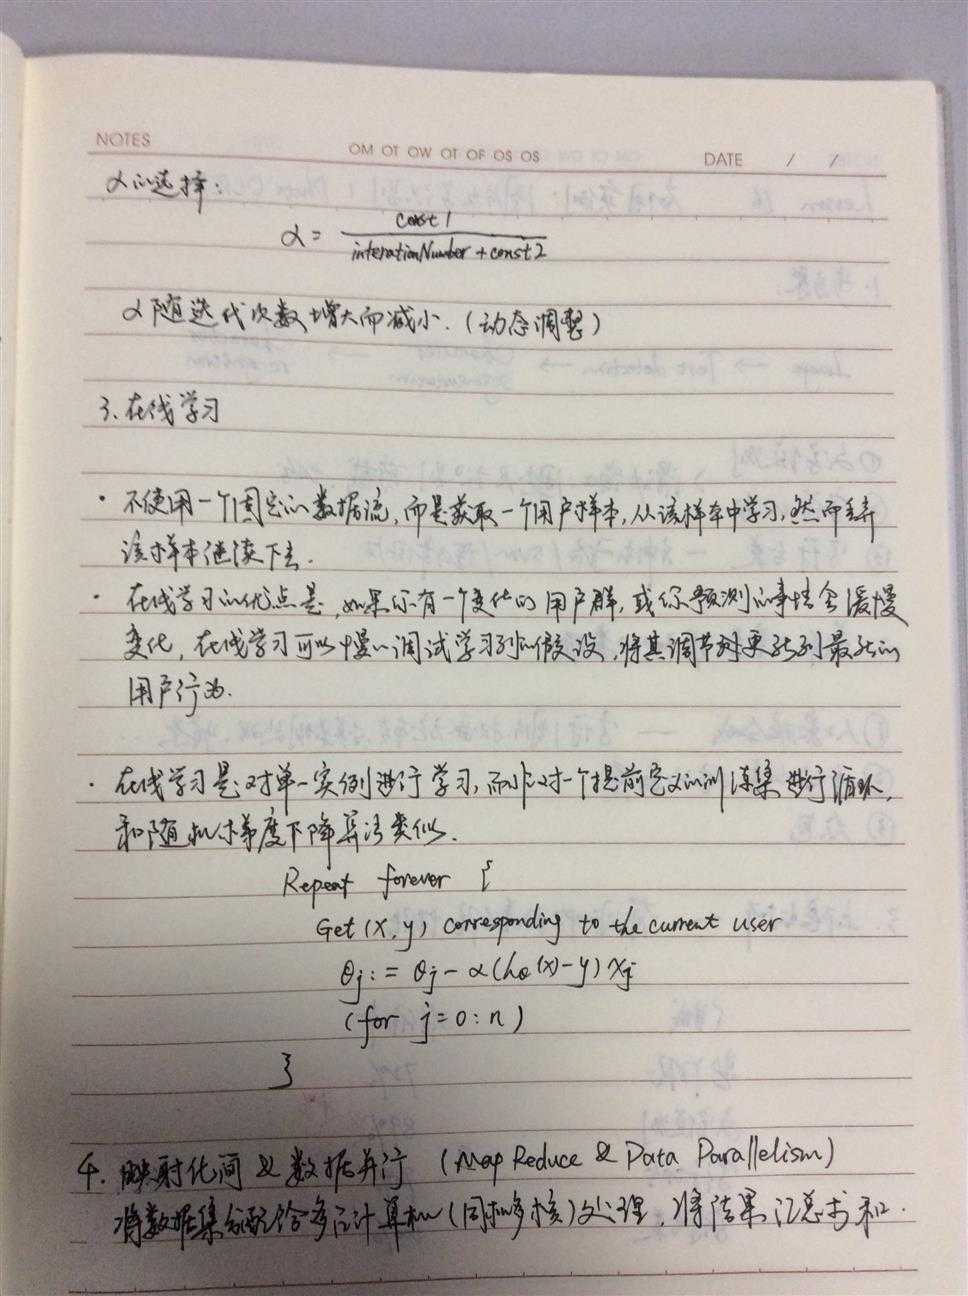 NOTES
OM OT OW OT OF OS OS
DATE / /
α的选择：
α = const1 / (interationNumber + const2)
α随迭代次数增大而减小.(动态调整)
3、在线学习
· 不使用一个固定的数据流,而是获取一个用户样本,从该样本中学习,然而丢弃
该样本继续下去.
· 在线学习的优点是,如果你有一个变化的用户群,或你预测的事情会缓慢
变化,在线学习可以慢慢调试学习到的假设,将其调节到更新到最新的
用户行为.
· 在线学习是对单一实例进行学习,而非对一个提前定义的训练集进行循环,
和随机梯度下降算法类似.
Repeat forever {
Get (x,y) corresponding to the current user
θj := θj - α(hθ(x)-y)xj
(for j=0:n)
}
4. 映射化简 & 数据并行 (Map Reduce & Data Parallelism)
将数据集分配给多台计算机(同机多核)处理,将结果汇总求和.